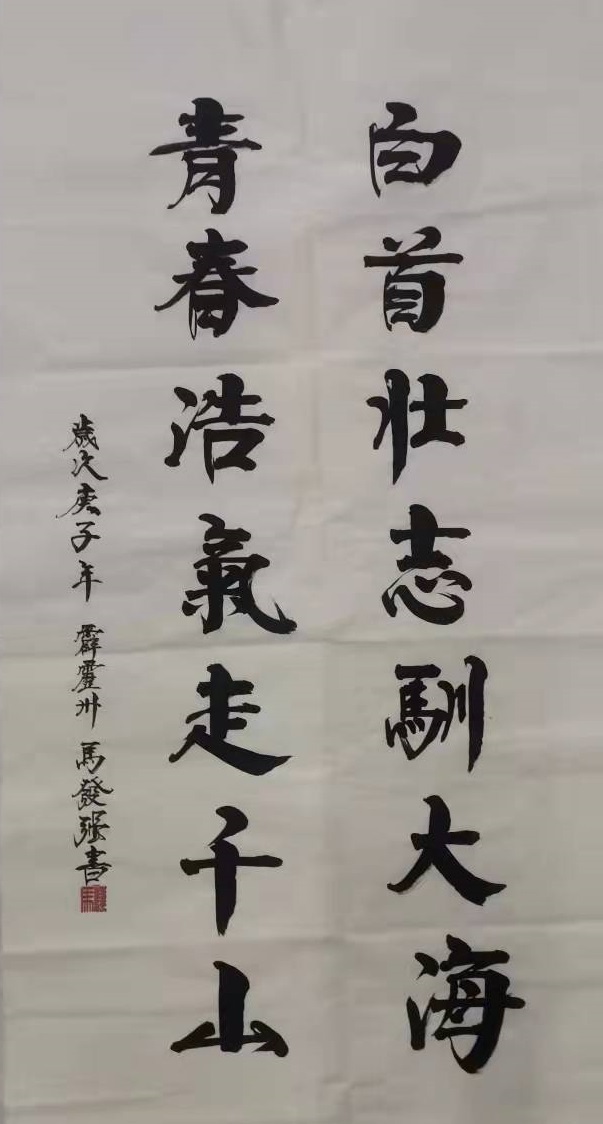 白首壯志馴大海
青春浩氣走千山
歲次庚子年 霹靂州 馬發強書